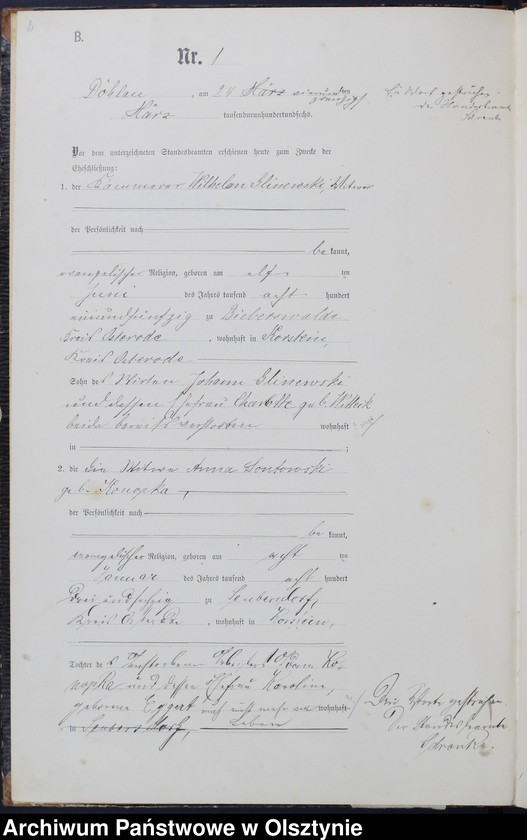 B.
Nr. 1
Döhlau, am 24 März vierundzwanzigsten
März tausendneunhundertundsechs.
Ein Wort gestrichen.
Der Standesbeamte
Vor dem unterzeichneten Standesbeamten erschienen heute zum Zwecke der
Eheschließung:
1. der Kämmerer Wilhelm Glinewski, Witwer
der Persönlichkeit nach
be kannt,
evangelischer Religion, geboren am elf ten
Juni des Jahres tausend acht hundert
einundfünfzig zu Bieberswalde
Kreis Osterode, wohnhaft in
Kreis Osterode
Sohn des Wirten Johann Glinewski
und dessen Ehefrau Charlotte geb.
beide bereits verstorben wohnhaft
in ;
2. die Witwe Anna Sontowski
geb. Konopka,
der Persönlichkeit nach
be kannt,
evangelischer Religion, geboren am acht ten
Januar des Jahres tausend acht hundert
zu
Kreis Osterode, wohnhaft in
Tochter des verstorbenen Arbeiters Ko-
nopka und dessen Ehefrau Karoline,
geborene Eggert noch nicht mehr am wohnhaft
in Leben
Drei Worte gestrichen.
Der Standesbeamte
Archiwum Państwowe w Olsztynie